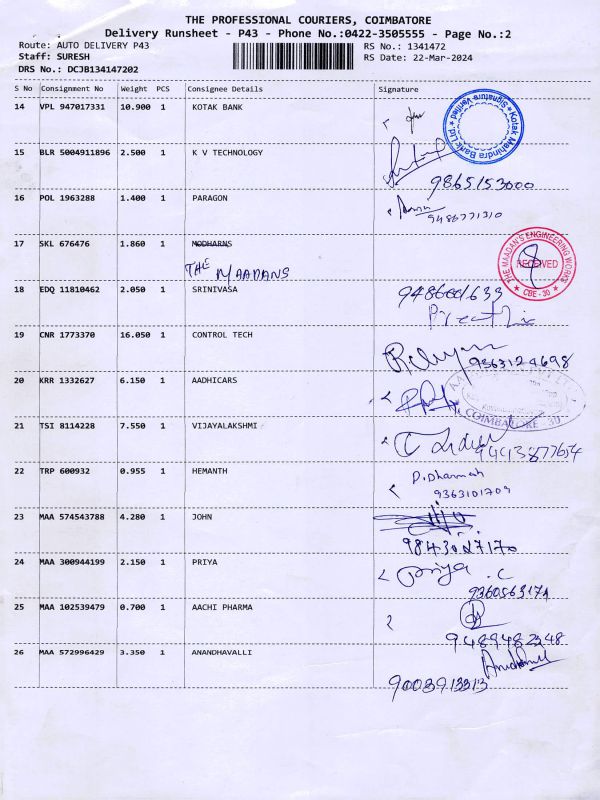 THE PROFESSIONAL COURIERS, COIMBATORE
Delivery Runsheet - P43 - Phone No.:0422-3505555 - Page No.:2
Route: AUTO DELIVERY P43 RS No.: 1341472
Staff: SURESH RS Date: 22-Mar-2024
DRS No.: DCJB134147202
S No Consignment No Weight PCS Consignee Details Signature
14 VPL 947017331 10.900 1 KOTAK BANK
Kotak Mahindra Bank Ltd. Signature Verified
15 BLR 5004911896 2.500 1 K V TECHNOLOGY
9865153000
16 POL 1963288 1.400 1 PARAGON
9486771310
17 SKL 676476 1.860 1 MODHARNS
THE MAADANS
THE MAADAN'S ENGINEERING WORKS RECEIVED CBE - 30
18 EDQ 11810462 2.050 1 SRINIVASA
19 CNR 1773370 16.050 1 CONTROL TECH
9363124698
20 KRR 1332627 6.150 1 AADHICARS
COIMBATORE 30
21 TSI 8114228 7.550 1 VIJAYALAKSHMI
22 TRP 600932 0.955 1 HEMANTH
9363101709
23 MAA 574543788 4.280 1 JOHN
9843027170
24 MAA 300944199 2.150 1 PRIYA
Priya . C
25 MAA 102539479 0.700 1 AACHI PHARMA
9489482348
26 MAA 572996429 3.350 1 ANANDHAVALLI